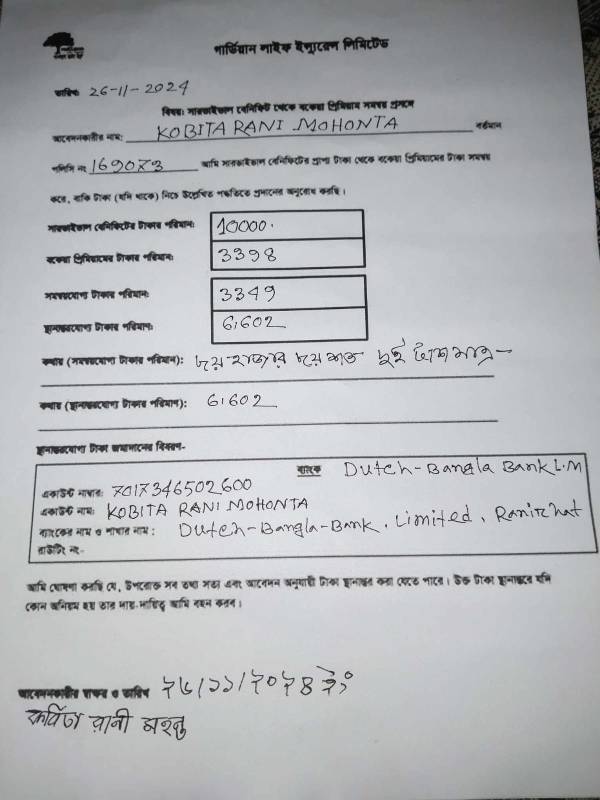 গার্ডিয়ান লাইফ ইন্স্যুরেন্স লিমিটেড
তারিখ: 26-11-2024
বিষয়: সারভাইভাল বেনিফিট থেকে বকেয়া প্রিমিয়াম সমন্বয় প্রসঙ্গে
আবেদনকারীর নাম: KOBITA RANI MOHONTA বর্তমান
পলিসি নং 169073 আমি সারভাইভাল বেনিফিটের প্রাপ্য টাকা থেকে বকেয়া প্রিমিয়ামের টাকা সমন্বয়
করে, বাকি টাকা (যদি থাকে) নিচে উল্লেখিত পদ্ধতিতে প্রদানের অনুরোধ করছি।
সারভাইভাল বেনিফিটের টাকার পরিমান: 10000.
বকেয়া প্রিমিয়ামের টাকার পরিমান: 3398
সমন্বয়যোগ্য টাকার পরিমান: 3349
স্থানান্তরযোগ্য টাকার পরিমাণ: 6.602
কথায় (সমন্বয়যোগ্য টাকার পরিমান): ছয় হাজার ছয় শত দুই টাকা মাত্র-
কথায় (স্থানান্তরযোগ্য টাকার পরিমান): 6.602
স্থানান্তরযোগ্য টাকা জমাদানের বিবরণ-
ব্যাংক Dutch-Bangla Bank L.M
একাউন্ট নাম্বার: 7017346502600
একাউন্ট নাম: KOBITA RANI MOHONTA
ব্যাংকের নাম ও শাখার নাম: Dutch-Bangla-Bank. Limited.
রাউটিং নং-
আমি ঘোষনা করছি যে, উপরোক্ত সব তথ্য সত্য এবং আবেদন অনুযায়ী টাকা স্থানান্তর করা যেতে পারে। উক্ত টাকা স্থানান্তরে যদি
কোন অনিয়ম হয় তার দায়-দায়িত্ব আমি বহন করব।
আবেদনকারীর স্বাক্ষর ও তারিখ ২৬/১১/২০২৪ ইং
কবিতা রানী মহন্ত